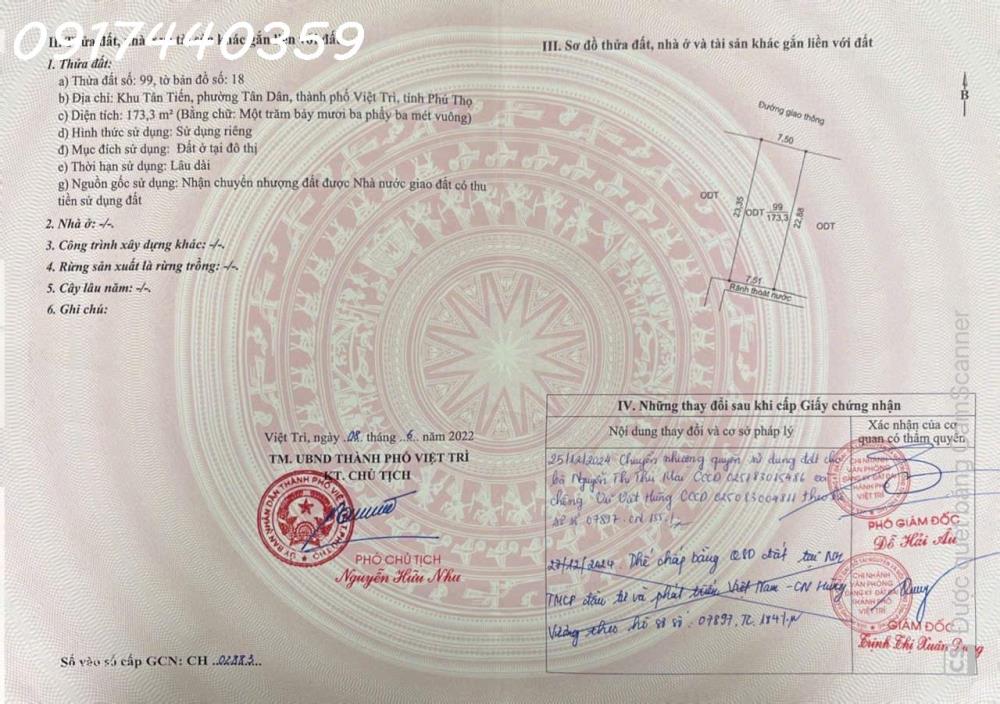 0917440359
II. Thửa đất, nhà ở và tài sản khác gắn liền với đất
1. Thửa đất:
a) Thửa đất số: 99, tờ bản đồ số: 18
b) Địa chỉ: Khu Tân Tiến, phường Tân Dân, thành phố Việt Trì, tỉnh Phú Thọ
c) Diện tích: 173,3 m² (Bằng chữ: Một trăm bảy mươi ba phẩy ba mét vuông)
d) Hình thức sử dụng: Sử dụng riêng
đ) Mục đích sử dụng: Đất ở tại đô thị
e) Thời hạn sử dụng: Lâu dài
g) Nguồn gốc sử dụng: Nhận chuyển nhượng đất được Nhà nước giao đất có thu
tiền sử dụng đất
2. Nhà ở: -/-.
3. Công trình xây dựng khác: -/-.
4. Rừng sản xuất là rừng trồng: -/-.
5. Cây lâu năm: -/-.
6. Ghi chú:
Việt Trì, ngày .08. tháng ..6.. năm 2022
TM. UBND THÀNH PHỐ VIỆT TRÌ
KT. CHỦ TỊCH
PHÓ CHỦ TỊCH
Nguyễn Hữu Nhu
Số vào sổ cấp GCN: CH ..02883..
III. Sơ đồ thửa đất, nhà ở và tài sản khác gắn liền với đất
B
Đường giao thông
7,50
ODT
23,35
ODT 99
173,3
22,88
ODT
7,51
Rãnh thoát nước
IV. Những thay đổi sau khi cấp Giấy chứng nhận
Nội dung thay đổi và cơ sở pháp lý
Xác nhận của cơ
quan có thẩm quyền
25/12/2024 Chuyển nhượng quyền sử dụng đất cho
bà Nguyễn Thị Thu Mai CCCD
chồng Vũ Việt Hùng CCCD theo
số 07897.CN.155
CHI NHÁNH
VĂN PHÒNG
ĐĂNG KÝ ĐẤT ĐAI
THÀNH PHỐ
VIỆT TRÌ
PHÓ GIÁM ĐỐC
Đỗ Hải Âu
27/12/2024 Thế chấp bằng QSD đất tại NH
TMCP đầu tư và phát triển Việt Nam - CN Hùng
Vương theo hồ sơ số: 07897.TC.184
CHI NHÁNH
VĂN PHÒNG
ĐĂNG KÝ ĐẤT ĐAI
THÀNH PHỐ
VIỆT TRÌ
GIÁM ĐỐC
Trịnh Thị Xuân Dung
CS Được quét bằng CamScanner